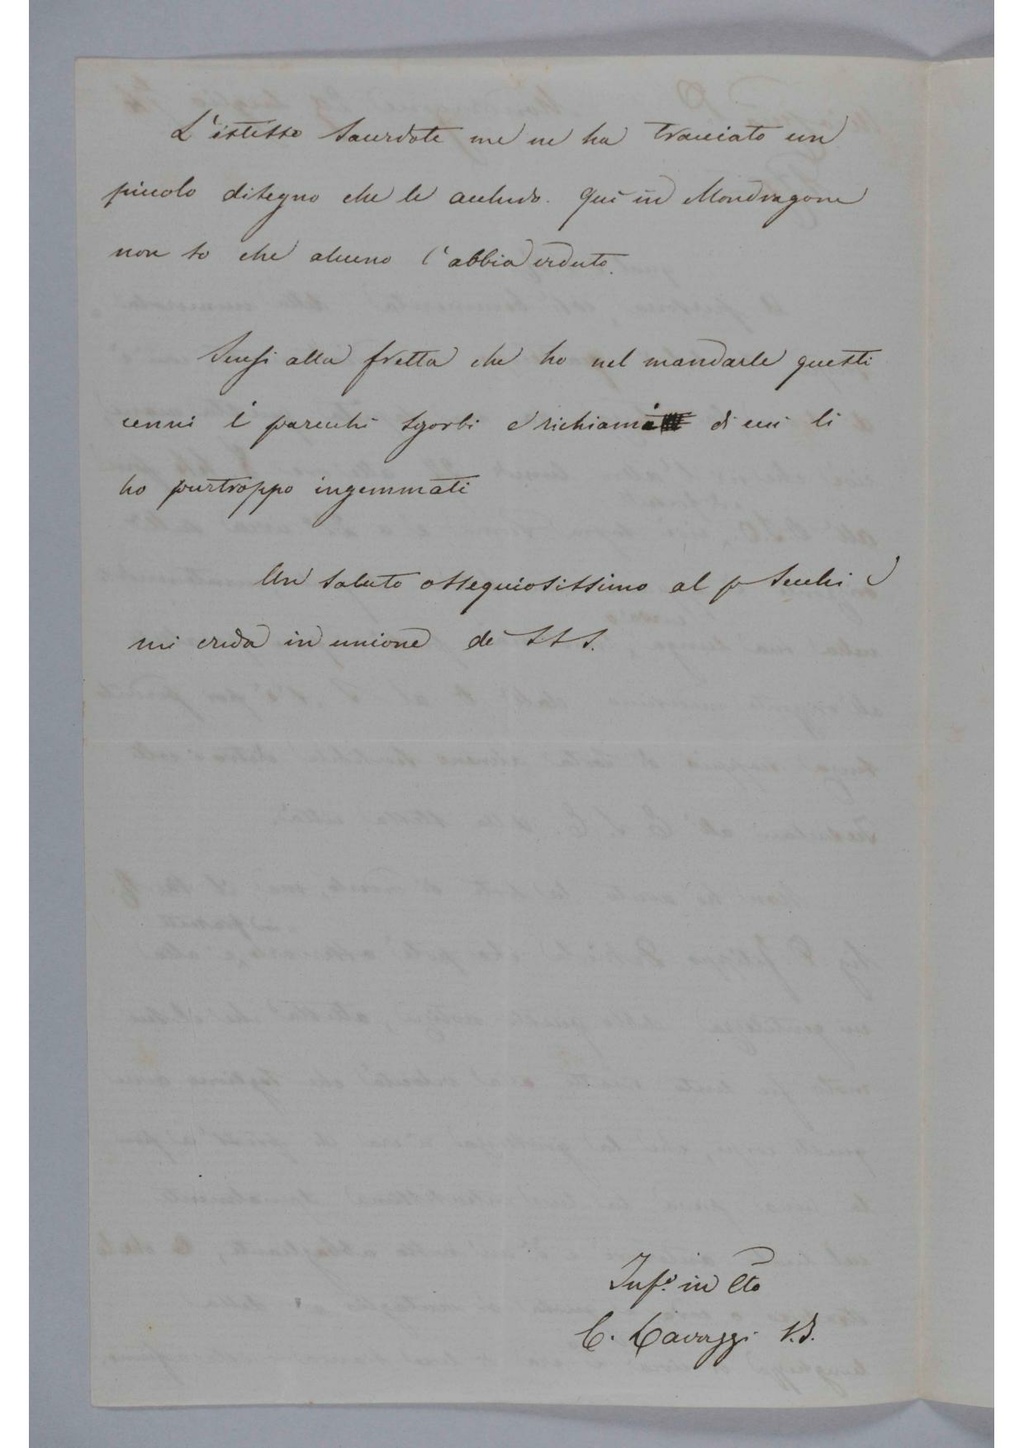 L'istesso Sacerdote me ne ha tracciato un
piccolo disegno che le accludo. Qui in Mondragone
non so che alcuno l'abbia veduto.
Scusi alla fretta che ho nel mandarle questi
cenni i parecchi sgorbi e richiami di cui li
ho purtroppo ingemmati
Un saluto ossequiosissimo al p Secchi e
mi creda in unione de' SSS.
Inf.o in Cto
C. Lavaggi S.J.